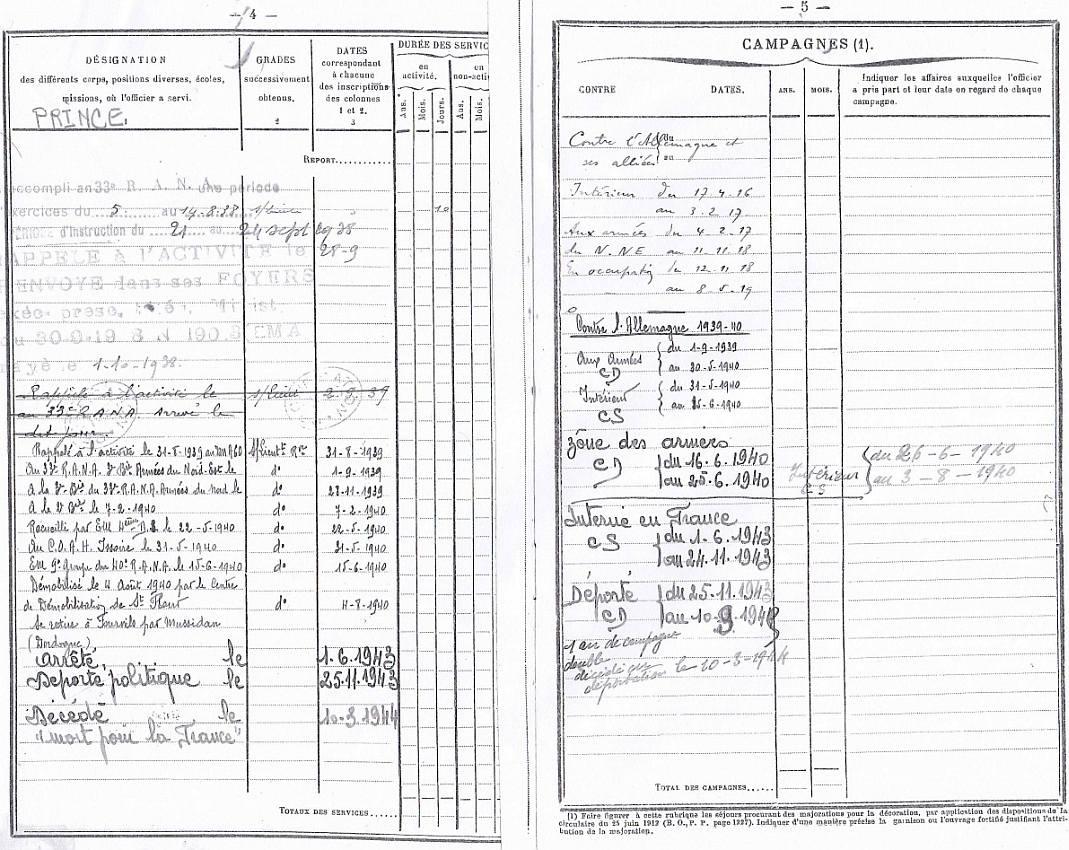 — 4 —
DÉSIGNATION
des différents corps, positions diverses, écoles,
missions, où l'officier a servi.
PRINCE.
1
GRADES
successivement
obtenus.
2
DATES
correspondant
à chacune
des inscriptions
des colonnes
1 et 2.
3
DURÉE DES SERVIC
en
activité.
en
non-acti
Ans.
Mois.
Jours.
Ans.
Mois.
REPORT............
accompli au 33e R. A. N. A. une période
exercices du 5 au 14-8-38 s/Lieut 10
d'Instruction du 21 au 24 sept 1938
RAPPELÉ à l'ACTIVITÉ le 28-9
RENVOYÉ dans ses FOYERS
du 30-9-19 8 N 190.8 CMA
rayé le 1-10-1938.
Rappelé à l'activité le s/Lieut 2-9-39
au 33e R.A.N.A. arrivé le
dit jour
Rappelé à l'activité le 31-8-1939 S/Lieutt Rve 31-8-1939
Au 33e R.A.N.A. Bie Armées du Nord-Est le do 1-9-1939
A la Bie du 33e R.A.N.A. Armées du Nord le do 27-11-1939
A la Bie le 7-2-1940 do 7-2-1940
Recueilli par EM 4ème D.I. le 22-5-1940 do 22-5-1940
Au C.O.A.H. Issoire le 31-5-1940 do 31-5-1940
EM 9e Groupe du 40e R.A.N.A. le 15-6-1940 do 15-6-1940
Démobilisé le 4 Août 1940 par le Centre
de Démobilisation de St Flour do 4-8-1940
Se retire à Tourvils par Mussidan
(Dordogne),
arrêté, le 1.6.1943
Déporté politique le 25.11.1943
Décédé le 10-3.1944
"mort pour la France"
TOTAUX DES SERVICES.....
— 5 —
CAMPAGNES (1).
CONTRE
DATES.
ANS.
MOIS.
Indiquer les affaires auxquelles l'officier
a pris part et leur date en regard de chaque
campagne.
Contre l'Allemagne et du
ses alliés au
Intérieur du 17.4.16
au 3.2.17
Aux armées du 4.2.17
du N.NE au 11.11.18
En occupation du 12.11.18
au 8.5.19
Contre l'Allemagne 1939-40
Aux Armées du 1-9-1939
CD au 30-5-1940
Intérieur du 31-5-1940
CS au 15-6-1940
zône des armées
CD du 16.6.1940
au 25.6.1940
Intérieur du 26-6-1940
CS au 3-8-1940
Interné en France
CS du 1.6.1943
au 24.11.1943
Déporté du 25.11.1943
CD au 10-9.194
1 an de campagne
double
décédé en
déportation le 10-3-1944
TOTAL DES CAMPAGNES.....
(1) Faire figurer à cette rubrique les séjours procurant des majorations pour la décoration, par application des dispositions de la
circulaire du 25 juin 1912 (B. O., P. P. page 1227). Indiquer d'une manière précise la garnison ou l'ouvrage fortifié justifiant l'attri-
bution de la majoration.